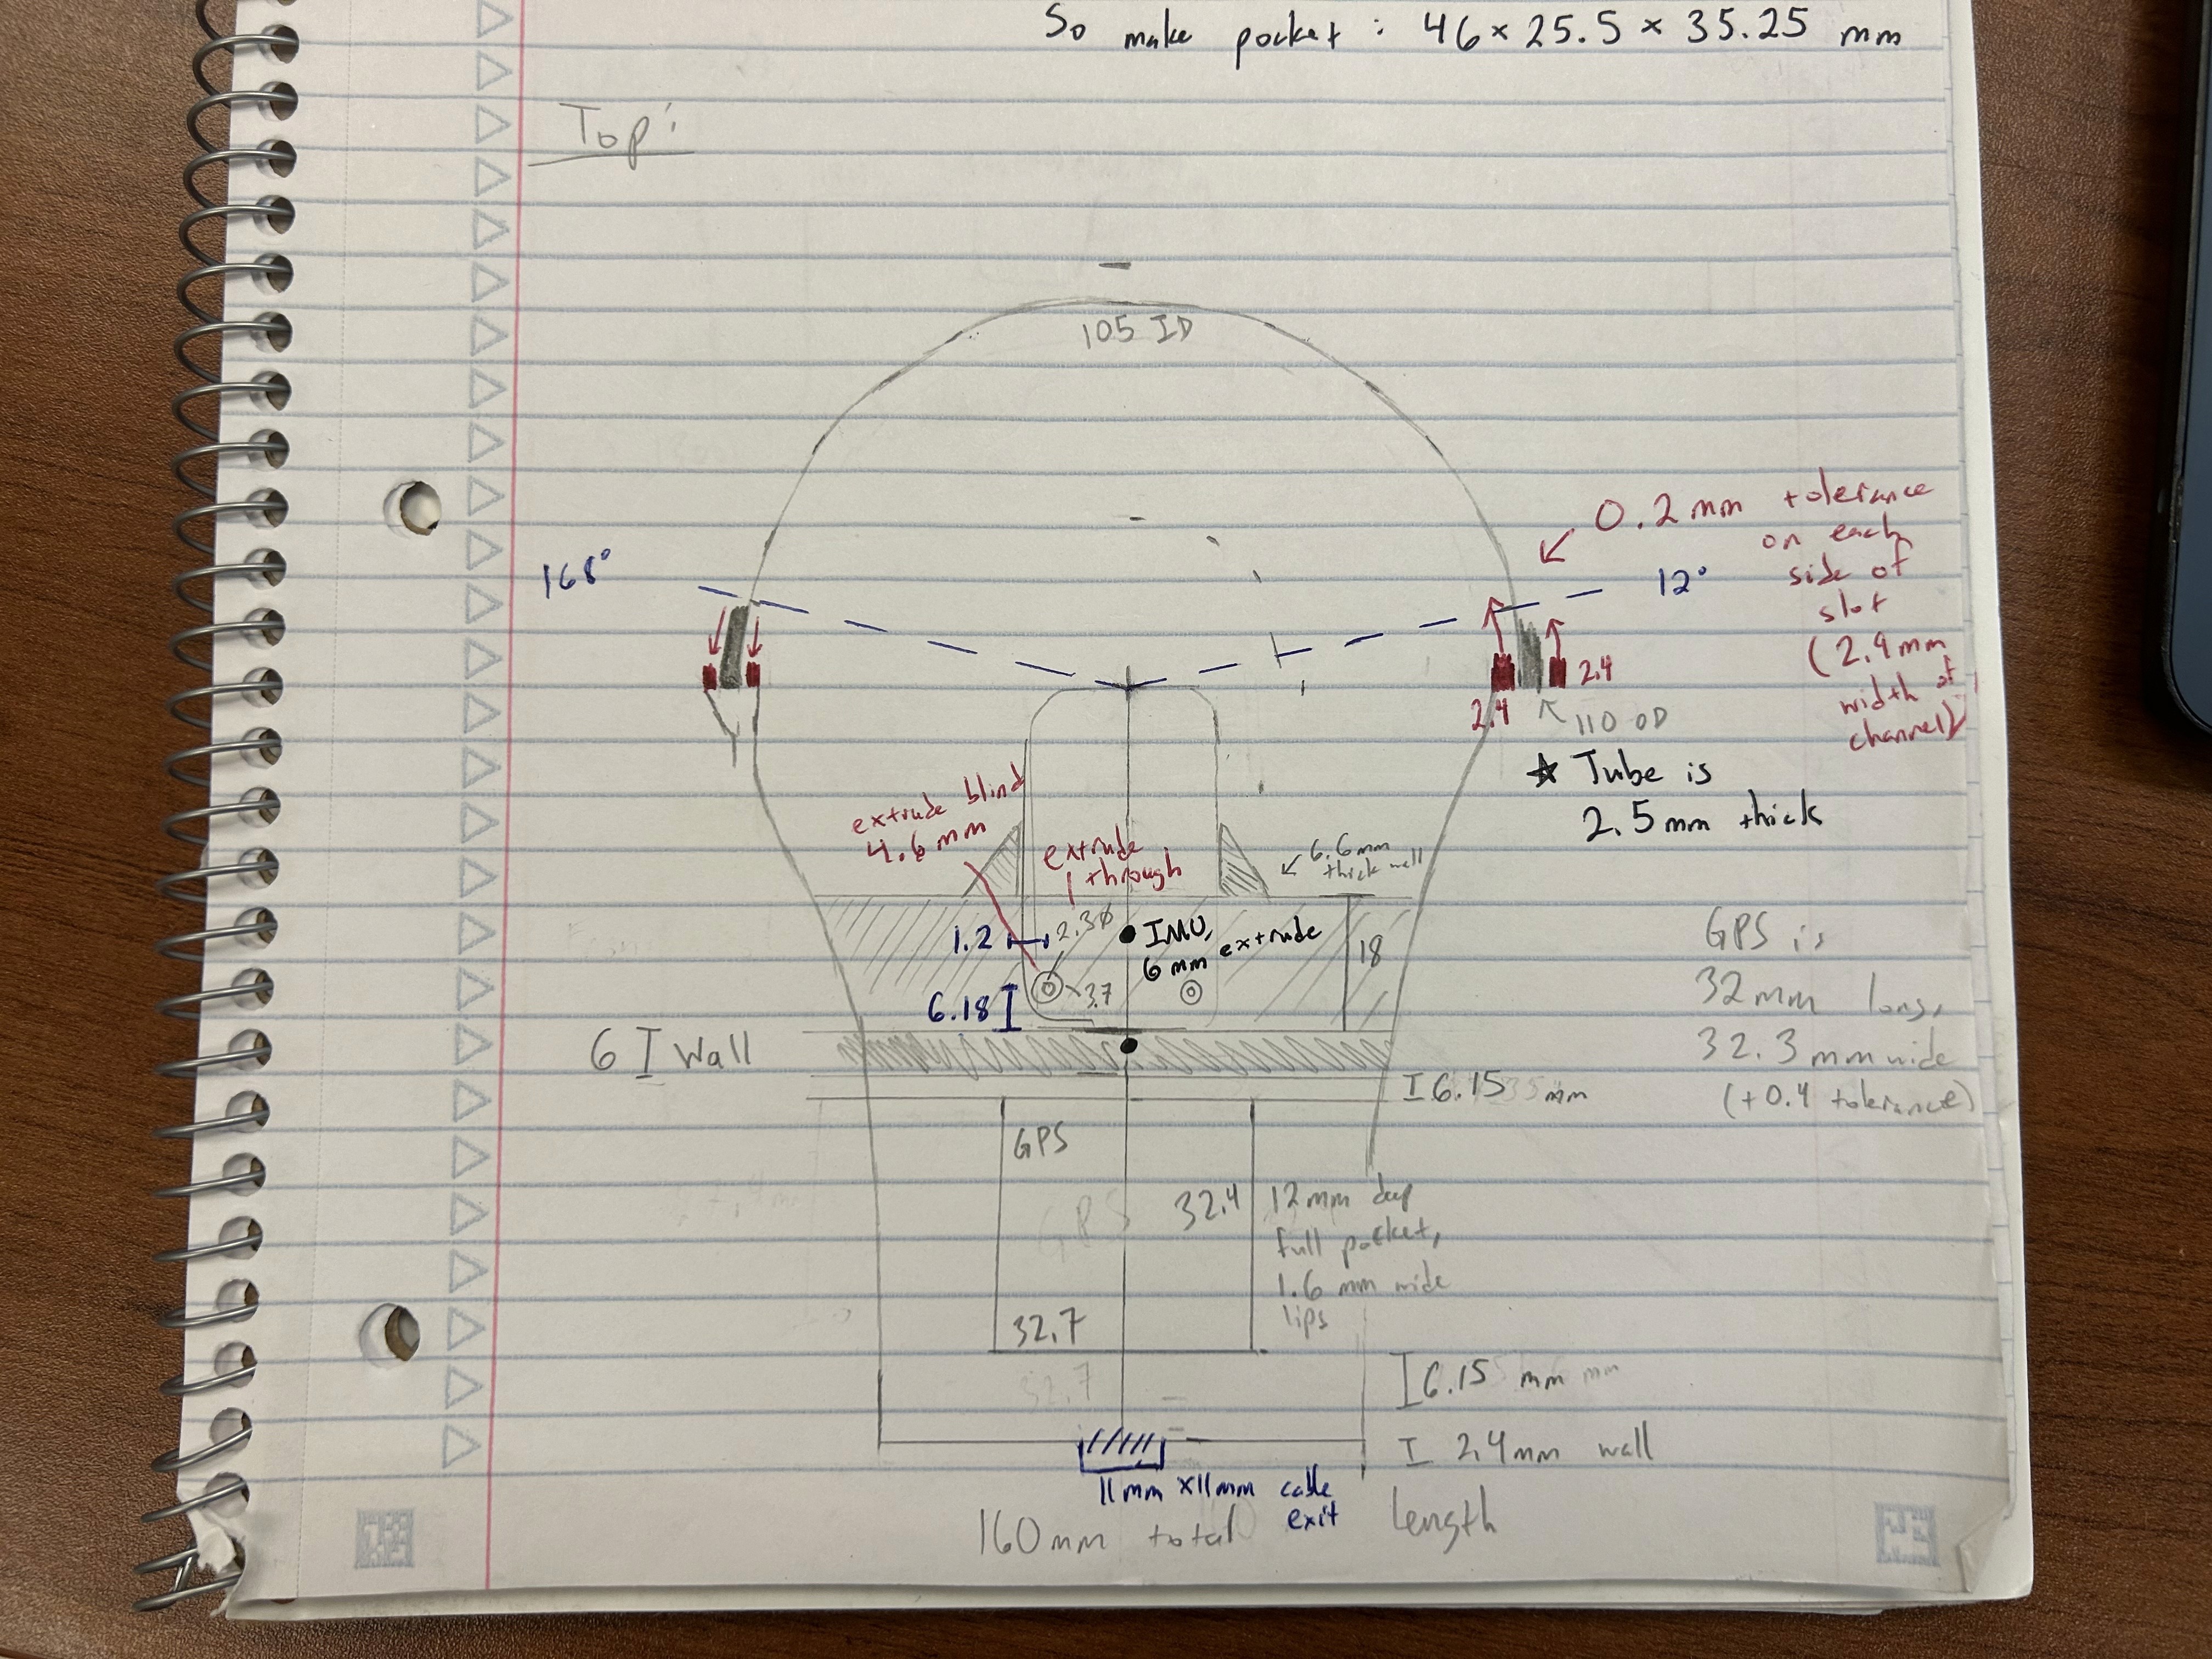 So make pocket : 46 × 25.5 × 35.25 mm
Top:
105 ID
0.2 mm tolerance
on each
side of
slot
(2.9 mm
width of
channel)
168°
12°
2.4
2.4
110 OD
★ Tube is
2.5 mm thick
extrude blind
4.6 mm
extrude
through
6.6 mm
thick wall
1.2
2.3 ø
IMU,
6 mm extrude
18
3.7
6.18
GPS is
32 mm long,
32.3 mm wide
(+0.4 tolerance)
6 I Wall
I 6.15 mm
GPS
GPS
32.4
12 mm deep
full pocket,
1.6 mm wide
lips
32.7
32.7
I 6.15 mm mm
I 2.4 mm wall
11mm x 11mm cable
exit
160 mm total length